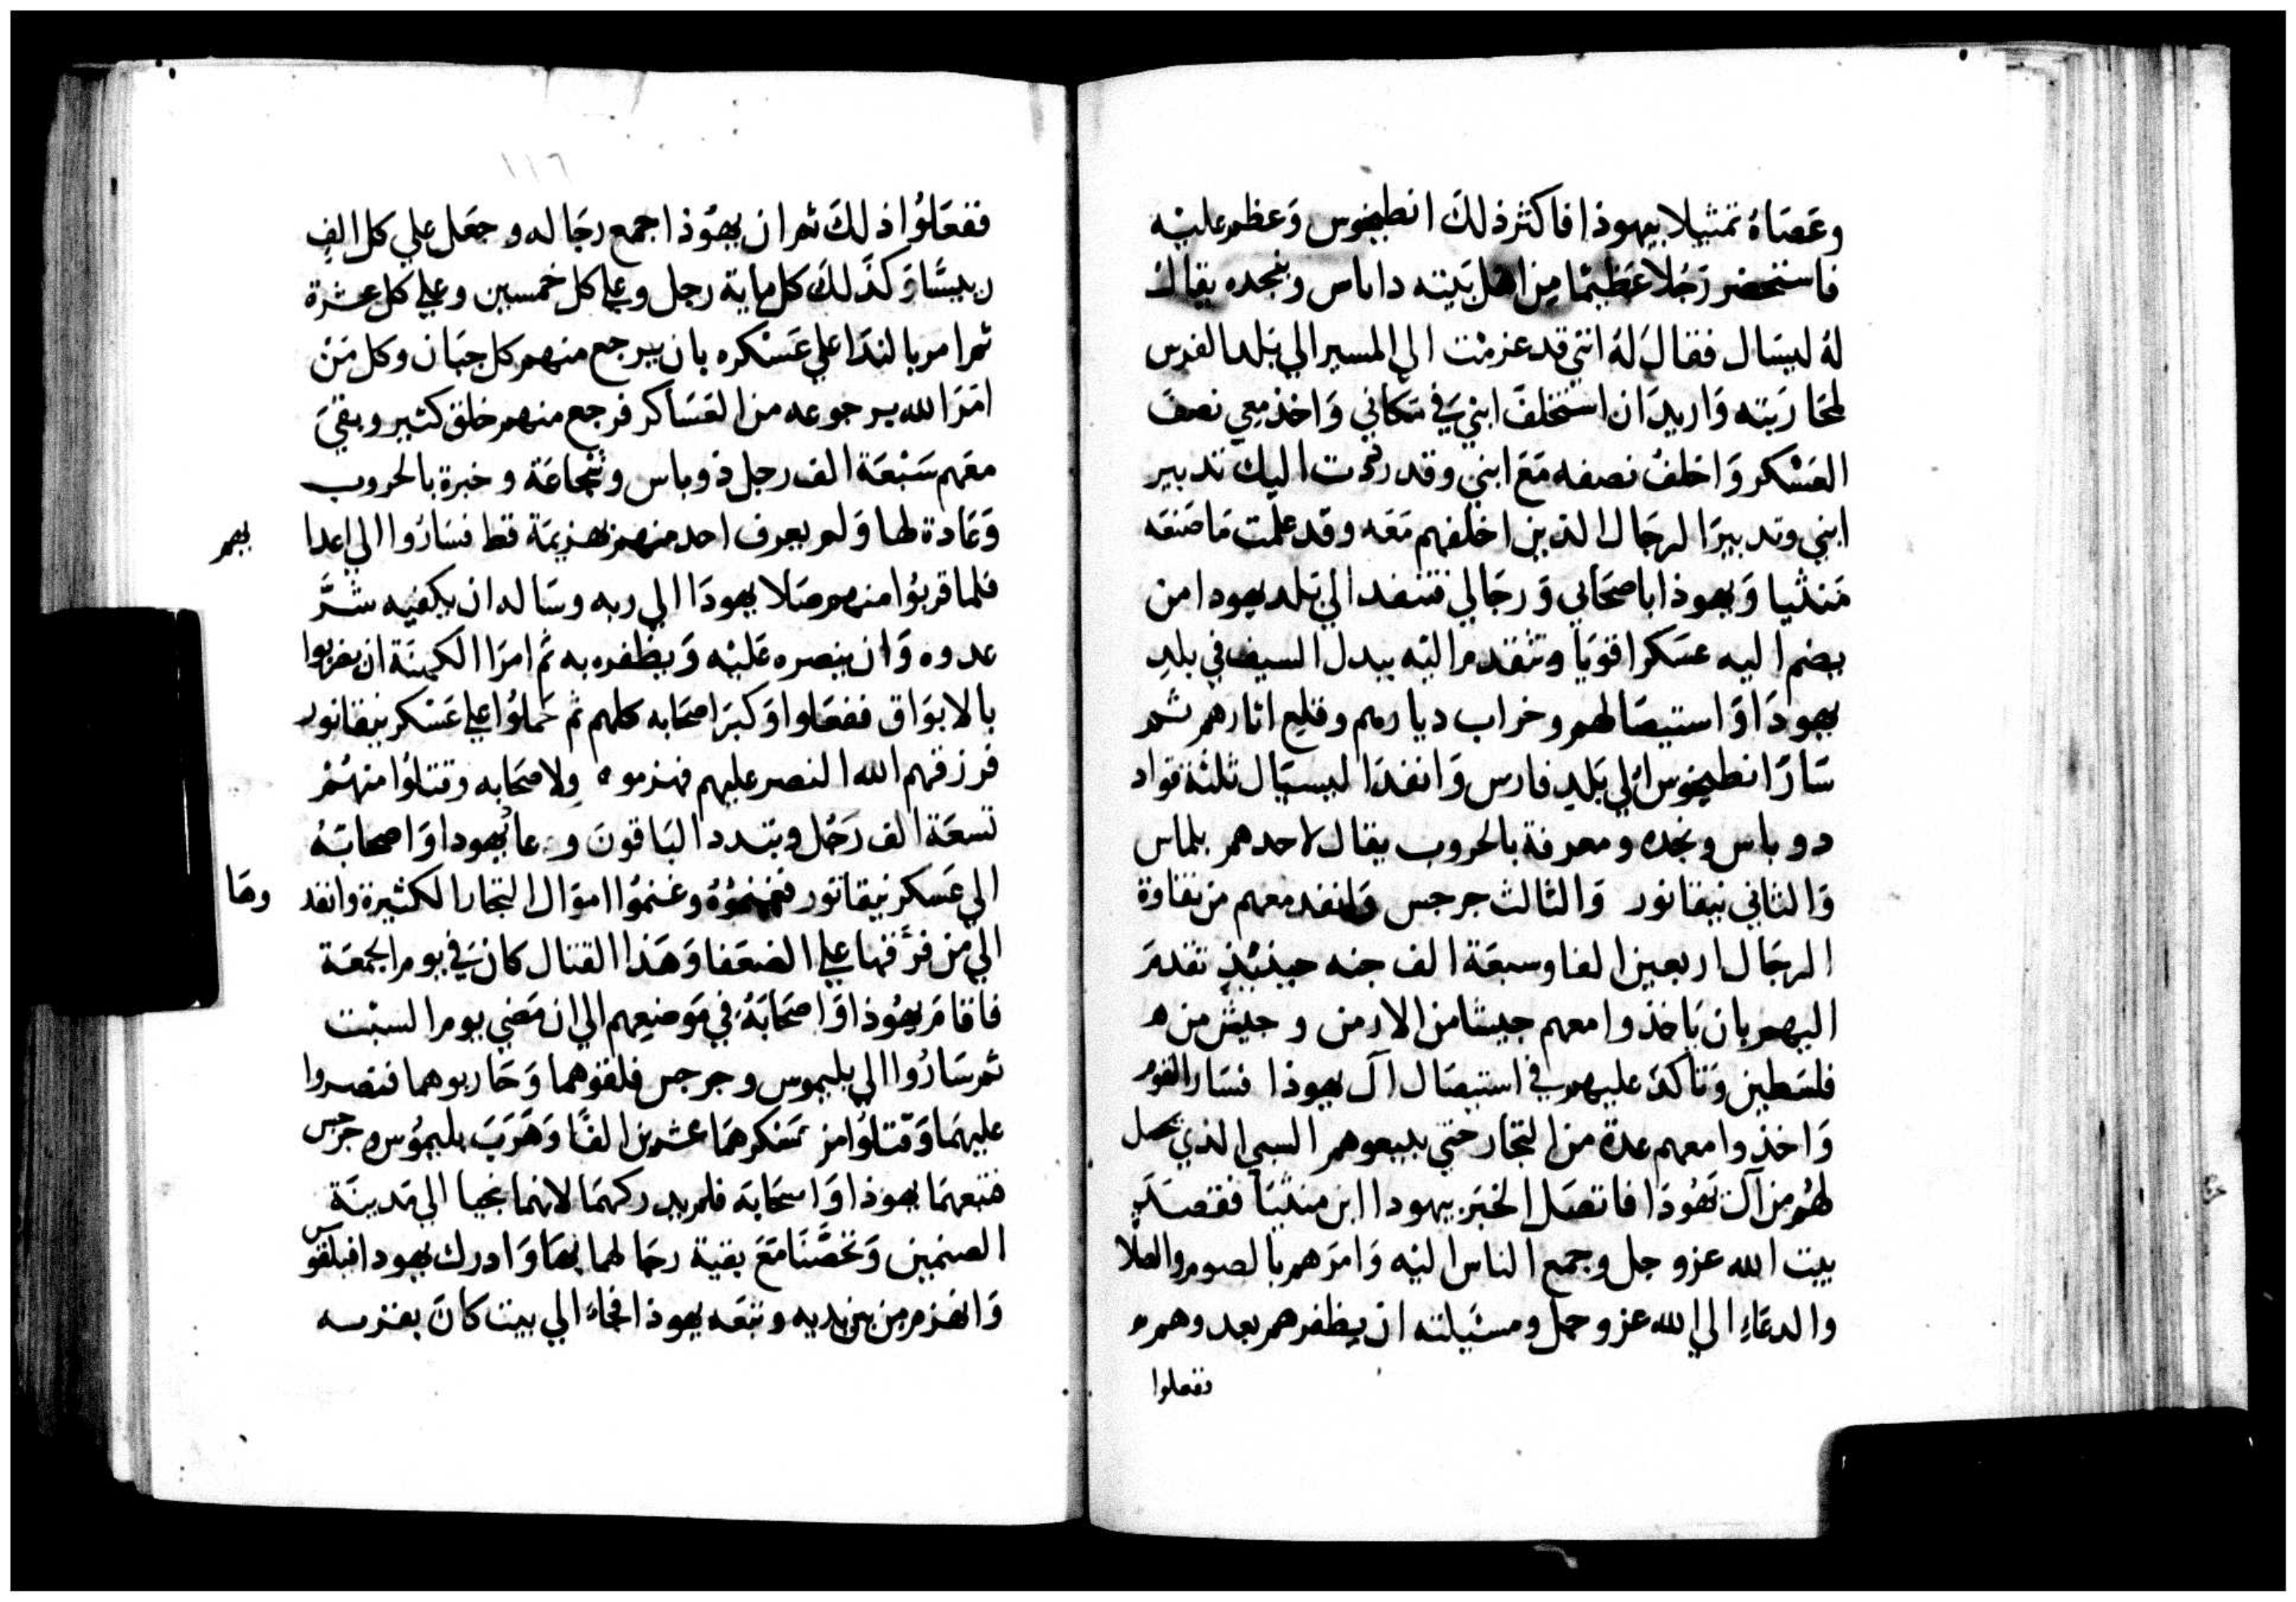 وعصاه تمثيلا بيهوذا فاكثر ذلك انطيخوس وعظم عليه
فاستحضر رجلا عظيما من اهل بيته داباس ونجده يقال
له ليسال فقال له انني قد عزمت الي المسير الي بلد الفرس
لمحاربته واريد ان استخلف ابني في مكاني واخذ معي نصف
العسكر واخلف نصفه مع ابني وقد رددت اليك تدبير
ابني وتدبير الرجال الذين اخلفهم معه وقد علمت ما صنعه
متثيا ويهوذا باصحابي ورجالي فتنفد الي بلد يهودا من
يضم اليه عسكرا قويا وتتقدم اليه ببدل السيف في بلد
يهودا واستيصالهم وخراب ديارهم وقلع اثارهم ثم
سار انطيخوس الي بلد فارس وانفد ليسيال ثلثة قواد
دوو باس ونجده ومعرفة بالحروب يقال لاحدهم بلماس
والثاني نيقانور والثالث جرجس وانفد معهم من نقاوة
الرجال اربعين الفا وسبعة الف جنه حينئذ تقدم
اليهم بان ياخذوا معهم جيشا من الارمن وجيش من
فلسطين وتاكد عليهم في استيصال آل يهوذا فسار القوم
واخذوا معهم عدة من التجار حتي يبيعوهم السبي الذي يحصل
لهم من آل يهوذا فاتصل الخبر بيهودا ابن متثيا فقصد
بيت الله عز وجل وجمع الناس اليه وامرهم بالصوم والصلا
والدعاء الي الله عز وجل ومسئيلته ان يظفرهم بعدوهم
ففعلوا
١١٦
ففعلوا ذلك ثم ان يهوذا جمع رجاله وجعل علي كل الف
ريسا وكذلك كل ماية رجل وعلي كل خمسين وعلي كل عشرة
ثم امر بالندا علي عسكره بان يرجع منهم كل جبان وكل من
امر الله برجوعه من العساكر فرجع منهم خلق كثير وبقي
معهم سبعة الف رجل ذو وباس وشجاعة وخبرة بالحروب
وعادة لها ولم يعرف احد منهم بهزيمة قط فساروا الي اعدا
يهم
فلما قربوا منهم صلا يهودا الي ربه وساله ان يكفيه شر
عدوه وان ينصره عليه ويظفره به ثم امر الكهنة ان يضربوا
بالابواق ففعلوا وكبر اصحابه كلهم ثم حملوا علي عسكر نيقانور
فرزقهم الله النصر عليهم فهزموه ولاصحابه وقتلوا منهم
تسعة الف رجل وبتدد الباقون وعاد يهودا واصحابه
الي عسكر نيقانور فغنموه وغنموا اموال التجار الكثيرة وانفد
وها
الي من فرقها علي الضعفا وهذا القتال كان في يوم الجمعة
فاقام يهوذا واصحابه في موضعهم الي ان مضي يوم السبت
ثم ساروا الي بليموس وجرجس فلقوهما وحاربوهما فنصروا
عليهما وقتلوا من عسكرهما عشرين الفا وهرب بليموس وجرجس
فتبعهما يهوذا واصحابه فلم يدركهما لانهما نجيا الي مدينة
الصنمين وتحصنا مع بقية رجالهما بها وادرك يهودا فيلقوس
وانهزم من بين يديه وتبعه يهوذا فجاء الي بيت كان بقربه